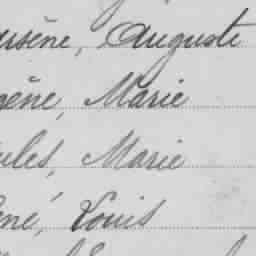 arsène, Auguste
gène, Marie
ules, Marie
ené, Louis